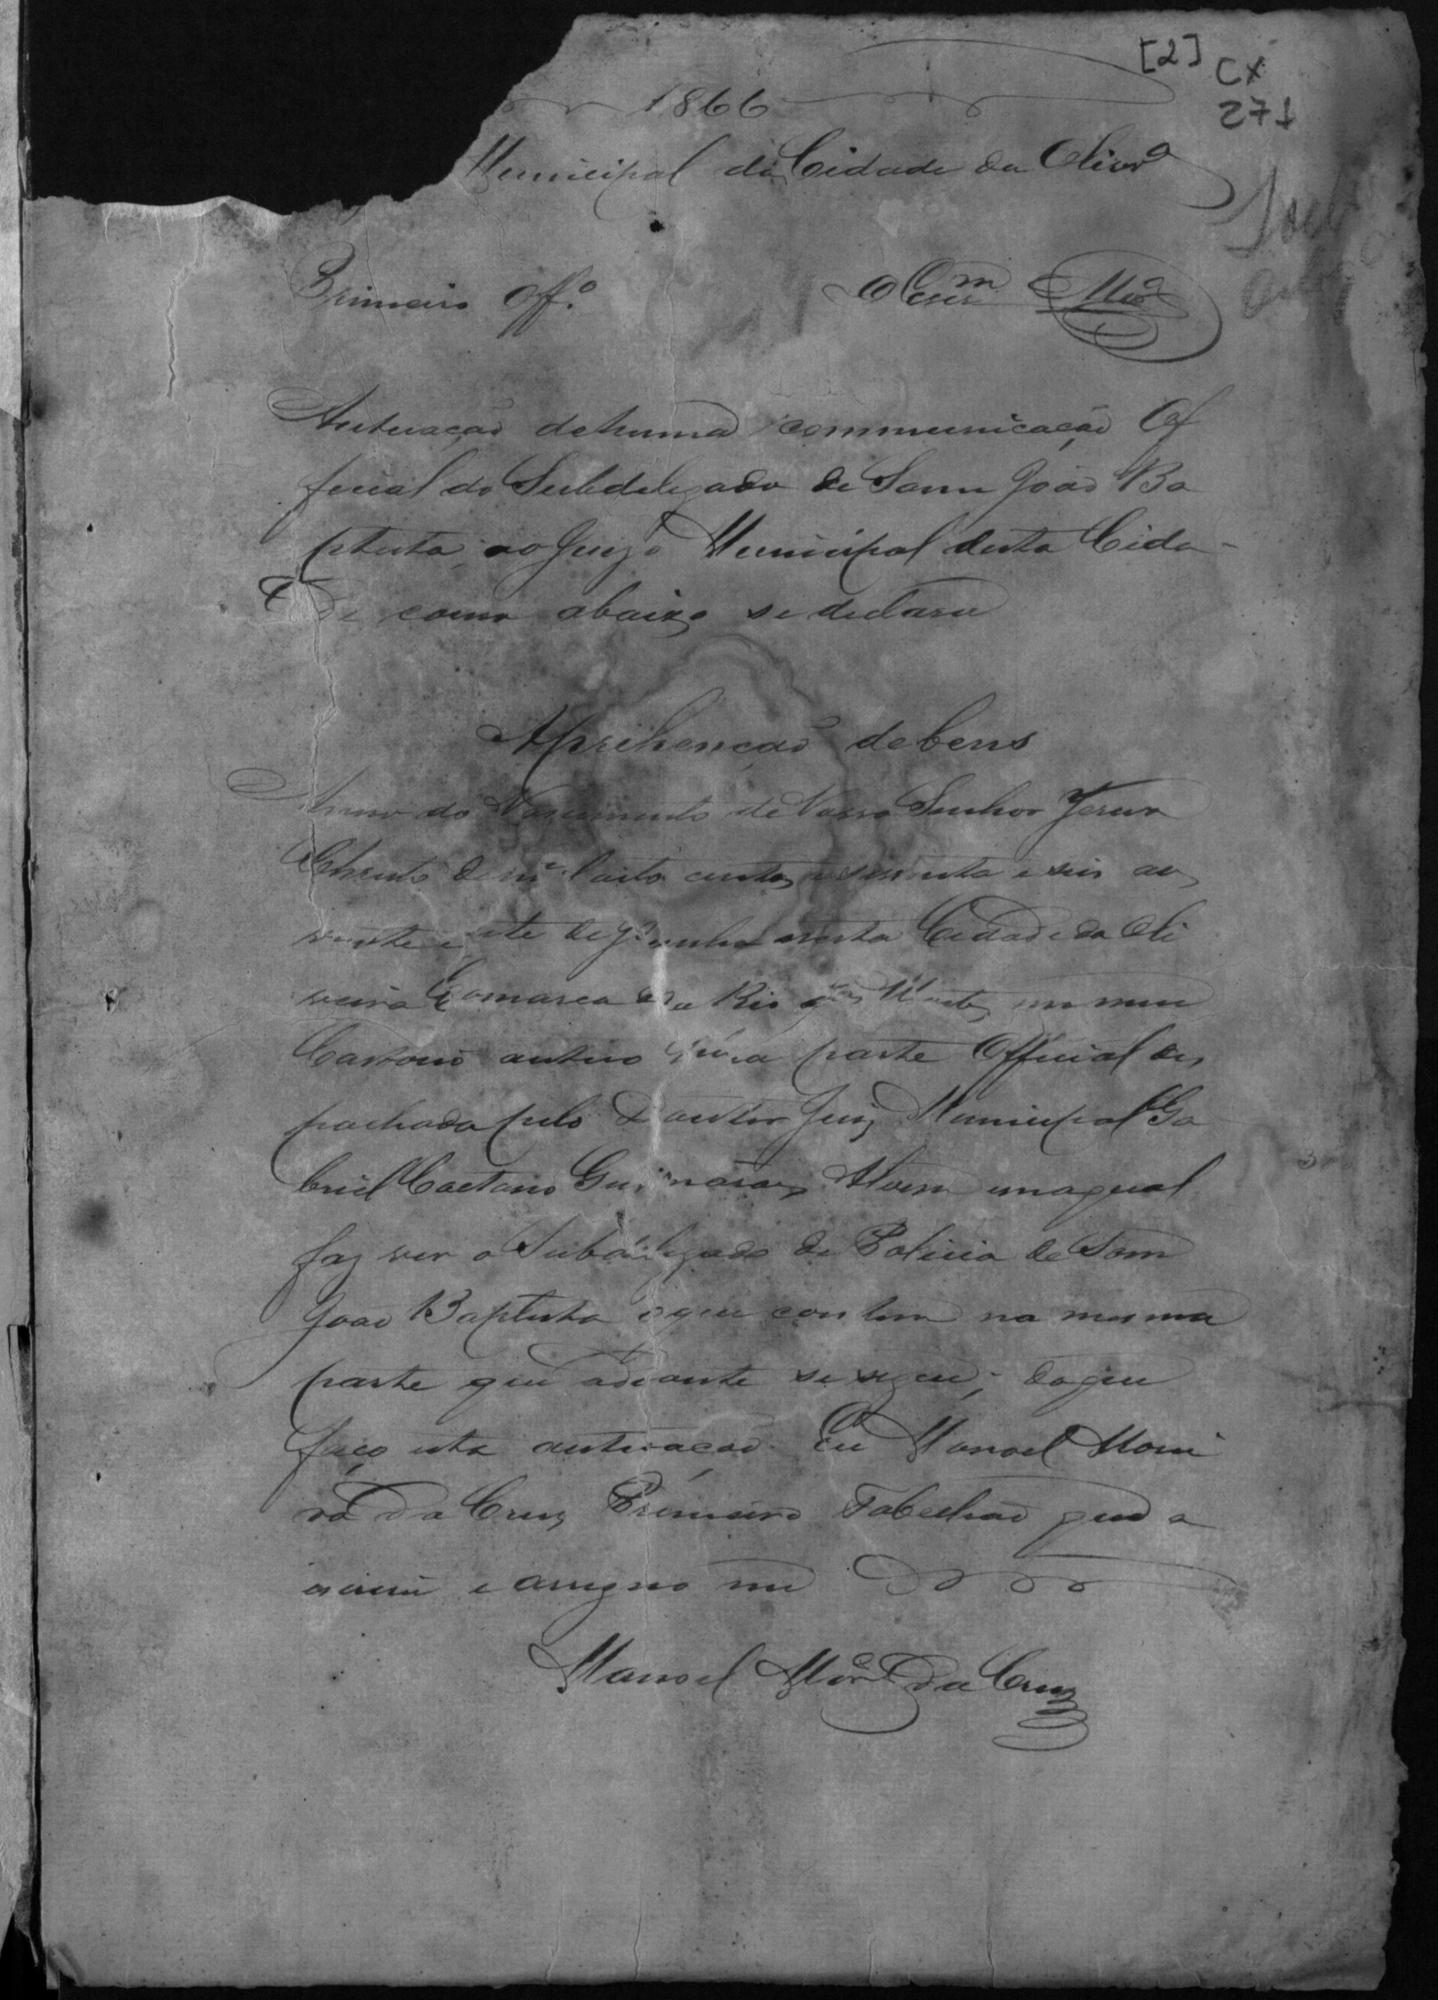 [2] CX
271
1866
Municipal da Cidade da Olivrª
Primeiro Off.º
O Escrm Mrª
Autuação dehuma communicação Of
ficial do Subdelegado de Sam João Ba
ptista ao Juizo Municipal desta Cida-
de como abaixo se declara
Aprihenção debens
Anno do Nascimento de Nosso Senhor Jesus
Christo de mil oito centos e sessenta e seis aos
vinte e sete de Junho nesta Cidade da Oli
veira Comarca do Rio das Mortes em meu
Cartorio autuo huma parte Official des
pachada pelo Doutor Juiz Municipal Ga
briel Caetano Guimarães Alvim emaqual
faz ver o Subdelegado de Policia de Sam
Joao Baptista oque contem na mesma
parte que adiante se segue; doque
faço esta autuação. Eu Manoel Morei
ra da Cruz Primeiro Tabelhão que o
escrevi e assigno me
Manoel Mor.ª da Cruz